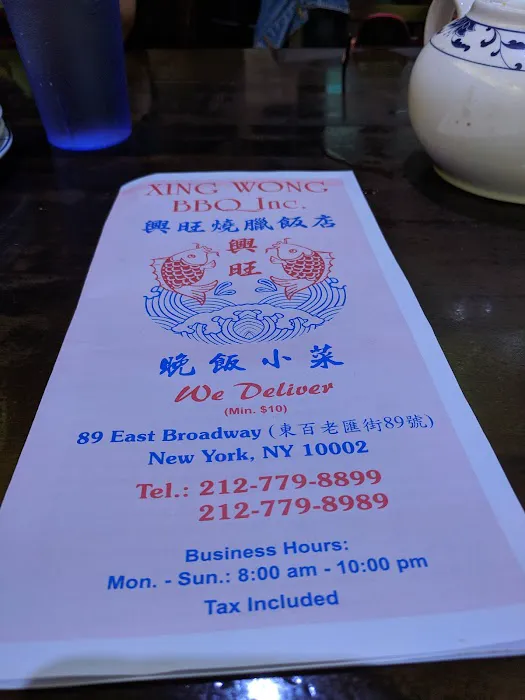 XING WONG
BBQ Inc.
興旺燒臘飯店
興
旺
晚飯小菜
We Deliver
(Min. $10)
89 East Broadway (東百老匯街89號)
New York, NY 10002
Tel.: 212-779-8899
212-779-8989
Business Hours:
Mon. - Sun.: 8:00 am - 10:00 pm
Tax Included